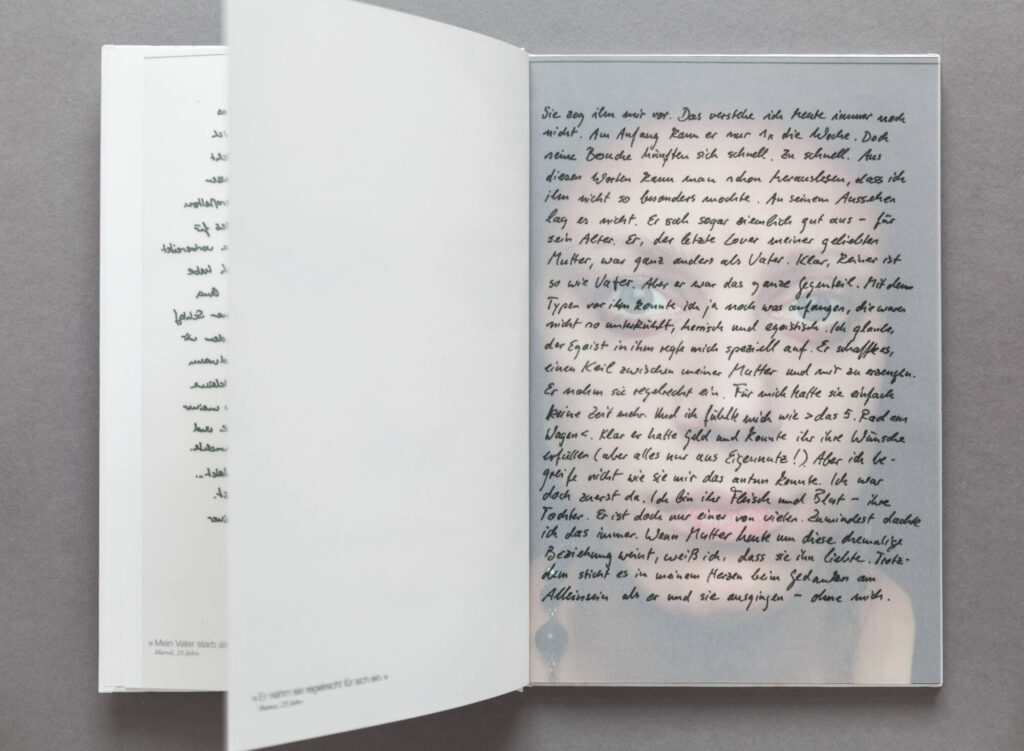 »Mein Vater starb als
25 Jahre
»Er nahm sie regelrecht für sich ein.«
Jahre
Sie zog ihn mir vor. Das verstehe ich heute immer noch
nicht. Am Anfang kam er nur 1x die Woche. Doch
seine Besuche häuften sich schnell. Zu schnell. Aus
diesen Worten kann man schon herauslesen, dass ich
ihn nicht so besonders mochte. An seinem Aussehen
lag es nicht. Er sah sogar ziemlich gut aus – für
sein Alter. Er, der letzte Lover meiner geliebten
Mutter, war ganz anders als Vater. Klar, keiner ist
so wie Vater. Aber er war das ganze Gegenteil. Mit dem
Typen vor ihm konnte ich ja noch was anfangen, die waren
nicht so unterkühlt, herrisch und egoistisch. Ich glaube,
der Egoist in ihm regte mich speziell auf. Er schaffte es,
einen Keil zwischen meiner Mutter und mir zu erzeugen.
Er nahm sie regelrecht ein. Für mich hatte sie einfach
keine Zeit mehr. Und ich fühlte mich wie >das 5. Rad am
Wagen<. Klar er hatte Geld und konnte ihr ihre Wünsche
erfüllen (aber alles nur aus Eigennutz!). Aber ich be-
greife nicht wie sie mir das antun konnte. Ich war
doch zuerst da. Ich bin ihr Fleisch und Blut – ihre
Tochter. Er ist doch nur einer von vielen. Zumindest dachte
ich das immer. Wenn Mutter heute um diese ehemalige
Beziehung weint, weiß ich, dass sie ihn liebte. Trotz-
dem sticht es in meinem Herzen beim Gedanken am
Alleinsein als er und sie ausgingen – ohne mich.